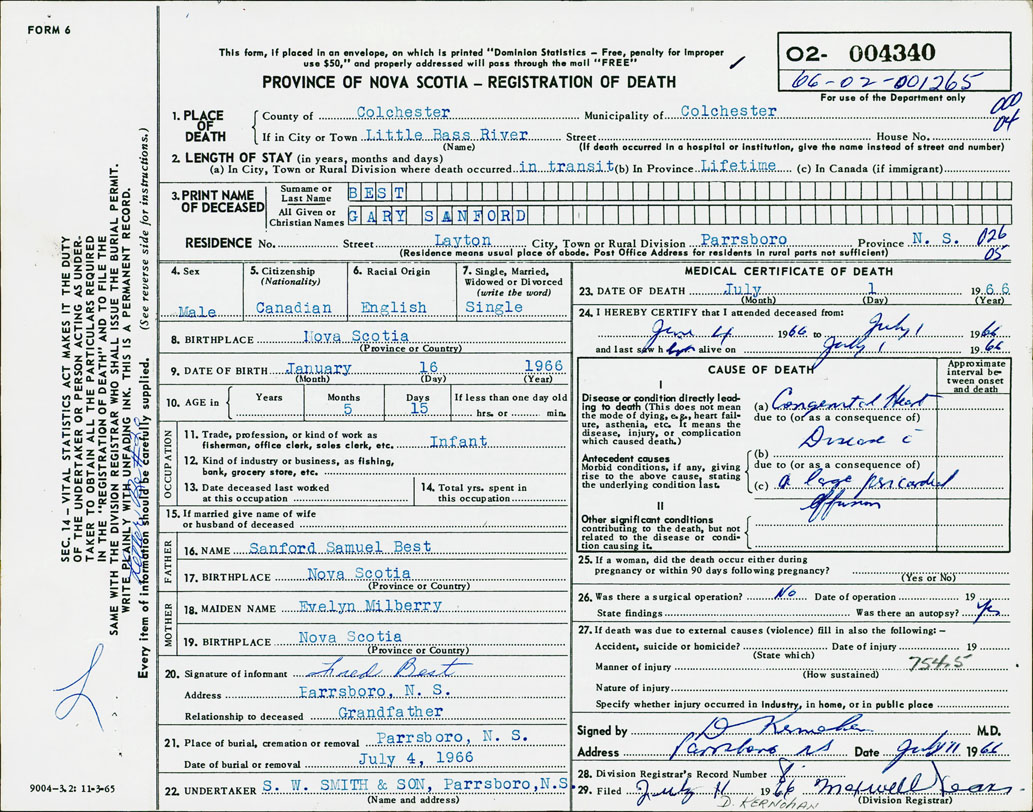 FORM 6
This form, if placed in an envelope, on which is printed "Dominion Statistics – Free, penalty for improper
use $50," and properly addressed will pass through the mail "FREE"
PROVINCE OF NOVA SCOTIA – REGISTRATION OF DEATH
O2- 004340
66-02-001265
For use of the Department only
000
04
1. PLACE OF DEATH
County of Colchester Municipality of Colchester
If in City or Town Little Bass River Street House No.
(Name) (If death occurred in a hospital or institution, give the name instead of street and number)
2. LENGTH OF STAY (in years, months and days)
(a) In City, Town or Rural Division where death occurred in transit (b) In Province Lifetime (c) In Canada (if immigrant)
3. PRINT NAME OF DECEASED
Surname or Last Name BEST
All Given or Christian Names GARY SANFORD
RESIDENCE No. Street Layton City, Town or Rural Division Parrsboro Province N. S. 026
(Residence means usual place of abode. Post Office Address for residents in rural parts not sufficient) 05
4. Sex
Male
5. Citizenship
(Nationality)
Canadian
6. Racial Origin
English
7. Single, Married,
Widowed or Divorced
(write the word)
Single
8. BIRTHPLACE Nova Scotia
(Province or Country)
9. DATE OF BIRTH January 16 1966
(Month) (Day) (Year)
10. AGE in
Years Months Days If less than one day old
5 15 hrs. or min.
OCCUPATION
11. Trade, profession, or kind of work as
fisherman, office clerk, sales clerk, etc. Infant
12. Kind of industry or business, as fishing,
bank, grocery store, etc.
13. Date deceased last worked
at this occupation
14. Total yrs. spent in
this occupation
15. If married give name of wife
or husband of deceased
FATHER
16. NAME Sanford Samuel Best
17. BIRTHPLACE Nova Scotia
(Province or Country)
MOTHER
18. MAIDEN NAME Evelyn Milberry
19. BIRTHPLACE Nova Scotia
(Province or Country)
20. Signature of informant Fred Best
Address Parrsboro, N. S.
Relationship to deceased Grandfather
21. Place of burial, cremation or removal Parrsboro, N. S.
Date of burial or removal July 4, 1966
22. UNDERTAKER S. W. SMITH & SON, Parrsboro, N.S.
(Name and address)
MEDICAL CERTIFICATE OF DEATH
23. DATE OF DEATH July 1 1966
(Month) (Day) (Year)
24. I HEREBY CERTIFY that I attended deceased from:
June 4 1966 to July 1 1966
and last saw him alive on July 1 1966
CAUSE OF DEATH
Approximate
interval be-
tween onset
and death
I
Disease or condition directly lead-
ing to death (This does not mean
the mode of dying, e.g., heart fail-
ure, asthenia, etc. It means the
disease, injury, or complication
which caused death.)
(a) Congenital Heart
due to (or as a consequence of)
Disease c̄
Antecedent causes
Morbid conditions, if any, giving
rise to the above cause, stating
the underlying condition last.
(b)
due to (or as a consequence of)
(c) a large pericardial
effusion
II
Other significant conditions
contributing to the death, but not
related to the disease or condi-
tion causing it.
25. If a woman, did the death occur either during
pregnancy or within 90 days following pregnancy?
(Yes or No)
26. Was there a surgical operation? No Date of operation 19
State findings Was there an autopsy? Yes
27. If death was due to external causes (violence) fill in also the following: –
Accident, suicide or homicide? Date of injury 19
(State which)
754.5
Manner of injury
(How sustained)
Nature of injury
Specify whether injury occurred in industry, in home, or in public place
Signed by D Kernohan M.D.
Address Parrsboro NS Date July 11 1966
28. Division Registrar's Record Number 8
29. Filed July 11 1966 Maxwell
D. KERNOHAN (Division Registrar)
SEC. 14 – VITAL STATISTICS ACT MAKES IT THE DUTY
OF THE UNDERTAKER OR PERSON ACTING AS UNDER-
TAKER TO OBTAIN ALL THE PARTICULARS REQUIRED
IN THE "REGISTRATION OF DEATH" AND TO FILE THE
SAME WITH THE DIVISION REGISTRAR WHO SHALL ISSUE THE BURIAL PERMIT.
WRITE PLAINLY WITH UNFADING INK. THIS IS A PERMANENT RECORD.
Every item of information should be carefully supplied. (See reverse side for instructions.)
9004-3.2: 11-3-65